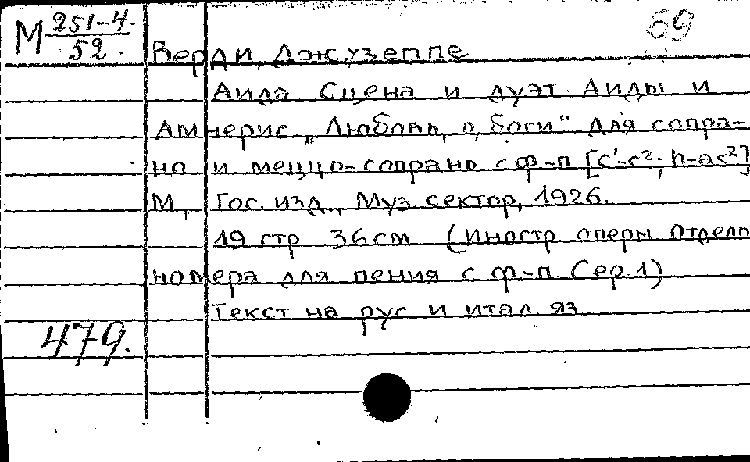 М 251-4
52.
69
Верди, Джузеппе
Аида Сцена и дуэт Аиды и
Амнерис „Любовь, о, боги" для сопра-
но и меццо-сопрано с ф-п [c¹-c²; h-as²]
М., Гос. изд., Муз. сектор, 1926.
19 стр 36 см (Иностр оперы Отдель
номера для пения с ф-п Сер. 1)
Текст на рус и итал. яз
479.